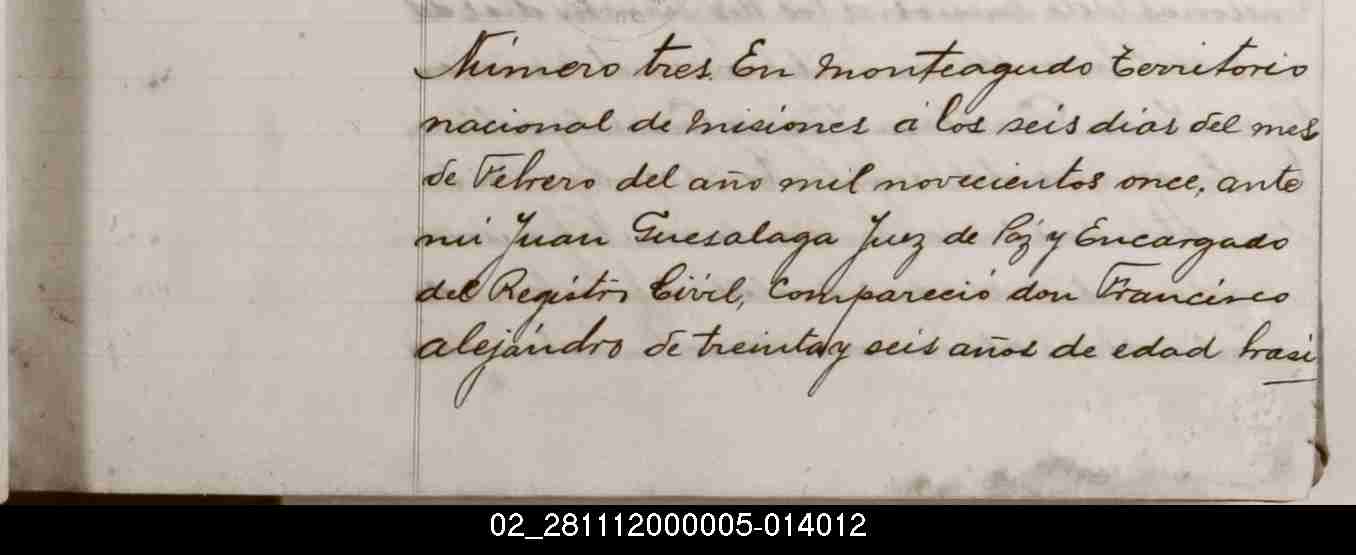 Número tres. En Monteagudo Territorio
nacional de Misiones á los seis dias del mes
de Febrero del año mil novecientos once, ante
mi Juan Guesalaga Juez de Paz y Encargado
del Registro Civil, compareció don Francisco
alejándro de treinta y seis años de edad brasi
02_281112000005-014012